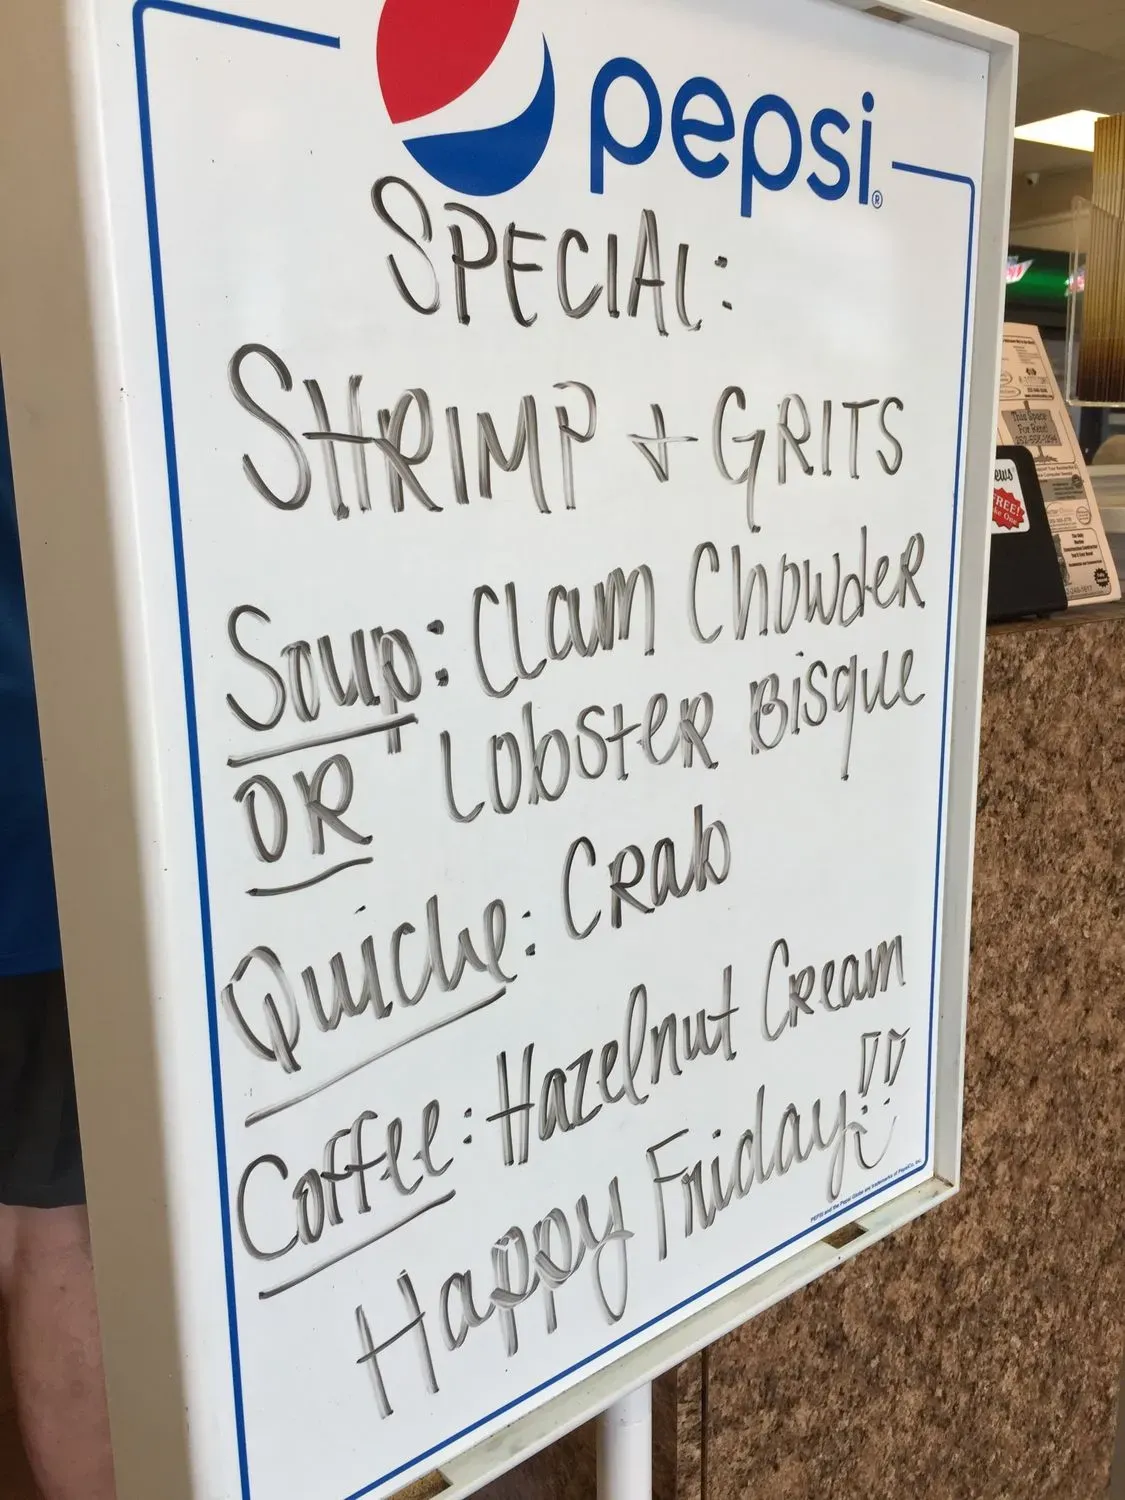 pepsi®
SPECIAL:
SHRIMP + GRITS
Soup: Clam Chowder
OR Lobster Bisque
Quiche: Crab
Coffee: Hazelnut Cream
Happy Friday!!
PEPSI and the Pepsi Globe are trademarks of PepsiCo, Inc.
This Space
For Rent!
252-555-1294
FREE!